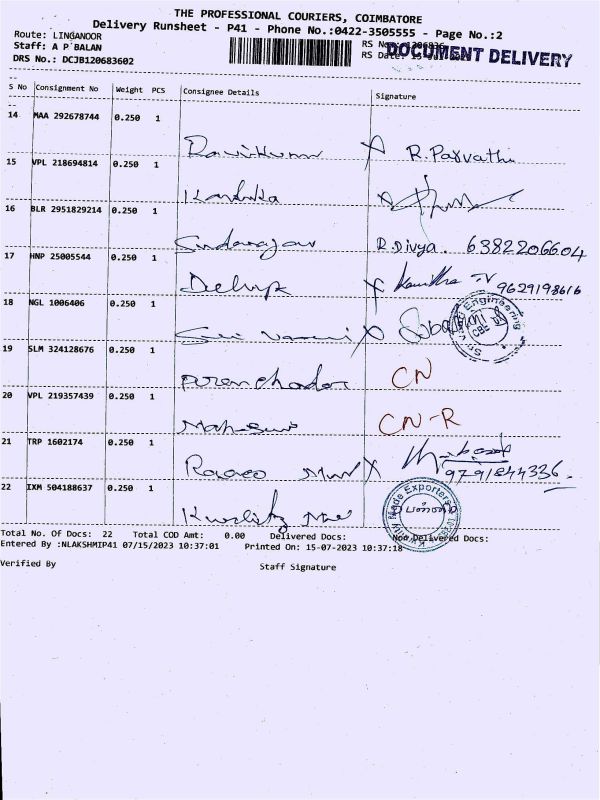 THE PROFESSIONAL COURIERS, COIMBATORE
Delivery Runsheet - P41 - Phone No.:0422-3505555 - Page No.:2
Route: LINGANOOR
Staff: A P BALAN
DRS No.: DCJB120683602
RS No
RS Date
DOCUMENT DELIVERY
S No Consignment No Weight PCS Consignee Details Signature
14 MAA 292678744 0.250 1
Ravikumar R. Parvathi
15 VPL 218694814 0.250 1
Karthika
16 BLR 2951829214 0.250 1
Sundarajan R. Divya. 6382206604
17 HNP 25005544 0.250 1
Delip Kavitha 9629198616
18 NGL 1006406 0.250 1
Sri Engineering CBE
19 SLM 324128676 0.250 1
CN
20 VPL 219357439 0.250 1
CN-R
21 TRP 1602174 0.250 1
9791844336
22 IXM 504188637 0.250 1
Kwality Made Exporters
Total No. Of Docs: 22 Total COD Amt: 0.00 Delivered Docs: Non Delivered Docs:
Entered By :NLAKSHMIP41 07/15/2023 10:37:01 Printed On: 15-07-2023 10:37:18
Verified By Staff Signature